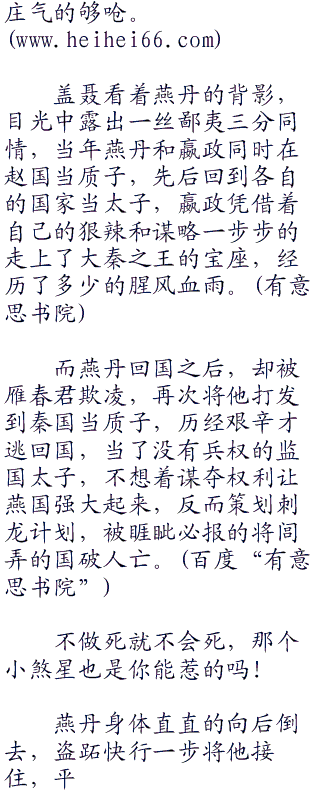 庄气的够呛。
(www.heihei66.com)
盖聂看着燕丹的背影，
目光中露出一丝鄙夷三分同
情，当年燕丹和嬴政同时在
赵国当质子，先后回到各自
的国家当太子，嬴政凭借着
自己的狠辣和谋略一步步的
走上了大秦之王的宝座，经
历了多少的腥风血雨。(有意
思书院)
而燕丹回国之后，却被
雁春君欺凌，再次将他打发
到秦国当质子，历经艰辛才
逃回国，当了没有兵权的监
国太子，不想着谋夺权利让
燕国强大起来，反而策划刺
龙计划，被睚眦必报的将闾
弄的国破人亡。(百度“有意
思书院”)
不做死就不会死，那个
小煞星也是你能惹的吗！
燕丹身体直直的向后倒
去，盗跖快行一步将他接
住，平